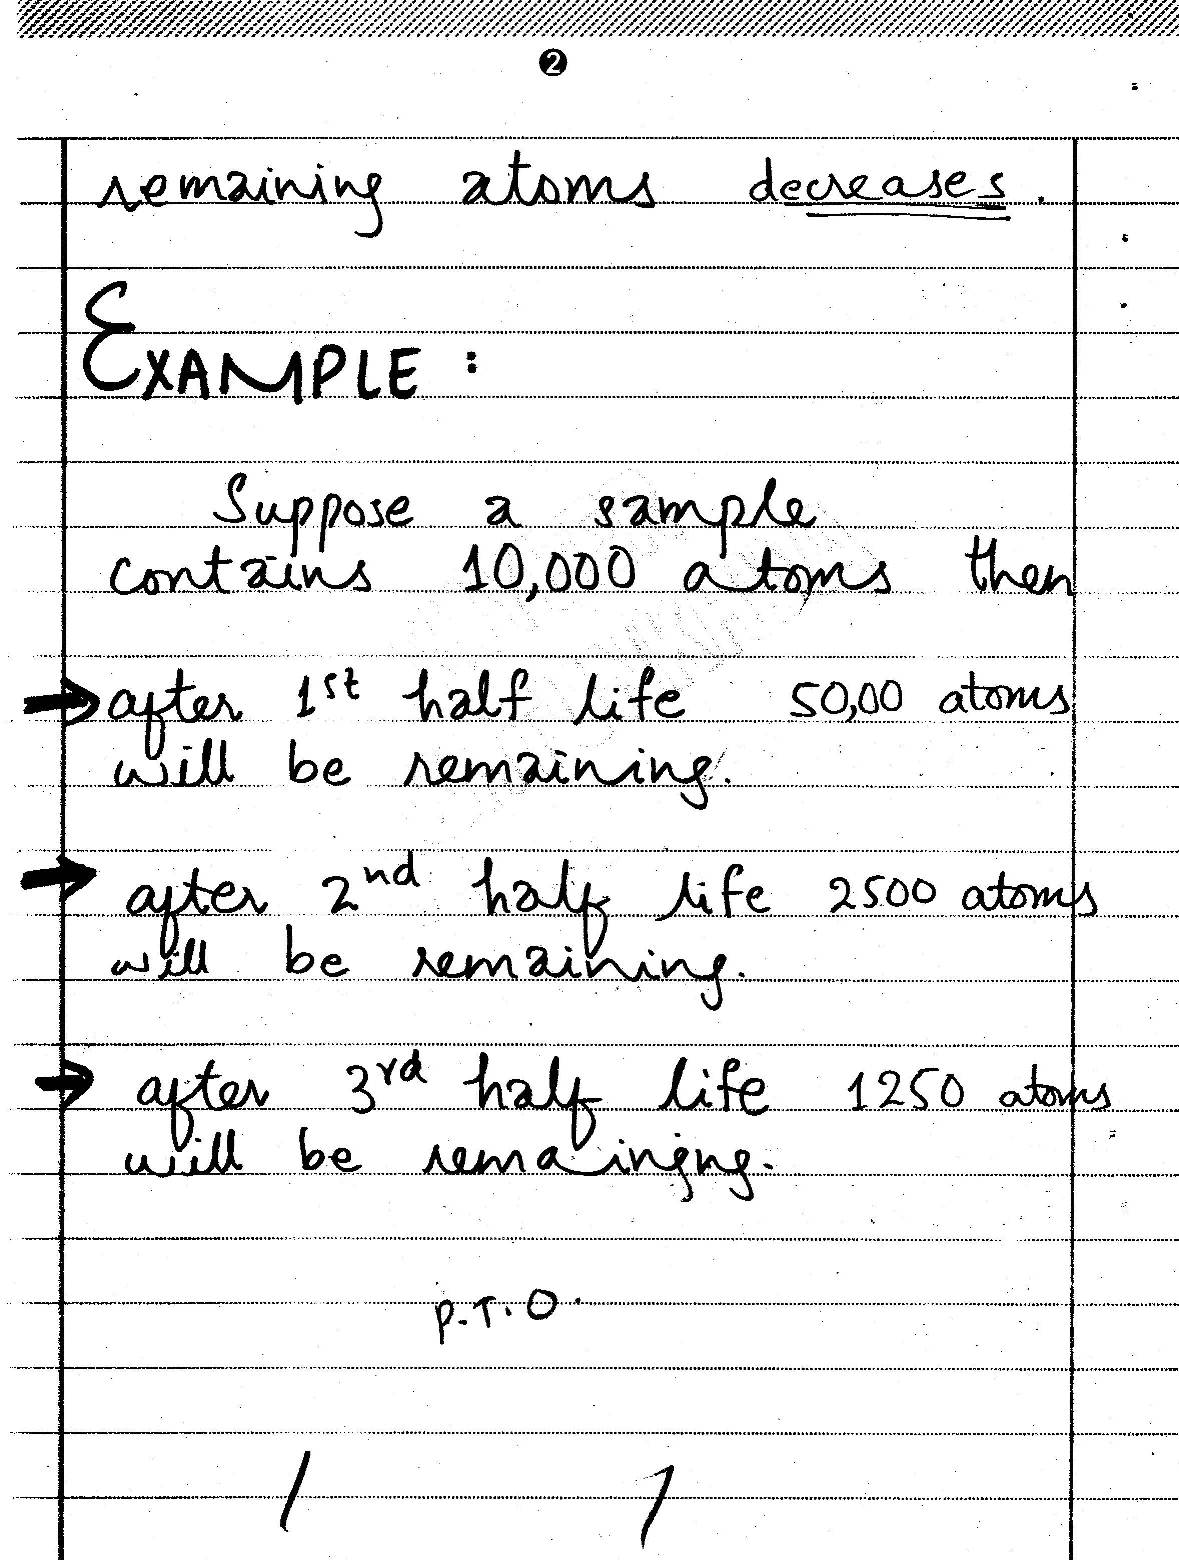 2
remaining atoms decreases.
EXAMPLE :
Suppose a sample
contains 10,000 atoms then
→ after 1st half life 50,00 atoms
will be remaining.
→ after 2nd half life 2500 atoms
will be remaining.
→ after 3rd half life 1250 atoms
will be remainingng.
P.T.O.